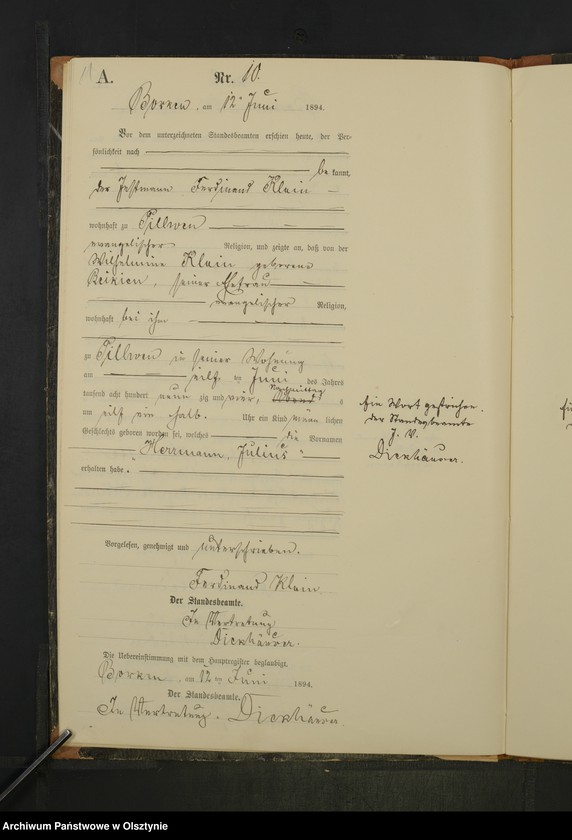 11 A. Nr. 10.
Borken, am 12ten Juni 1894.
Vor dem unterzeichneten Standesbeamten erschien heute, der Per-
sönlichkeit nach
be kannt,
der Ferdinand Klein
wohnhaft zu Sillwen
evangelischer Religion, und zeigte an, daß von der
Wilhelmine Klein geborene
seiner Ehefrau
evangelischer Religion,
wohnhaft bei ihm
zu Sillwen in seiner Wohnung
am elf ten Juni des Jahres
tausend acht hundert neun zig und vier, Nachmittag s
um elf ein halb Uhr ein Kind männ lichen
Geschlechts geboren worden sei, welches die Vornamen
Herrmann, Julius
erhalten habe.
Ein Wort gestrichen.
der Standesbeamte
J. V.
Dickhäuser.
Vorgelesen, genehmigt und unterschrieben.
Ferdinand Klein
Der Standesbeamte.
In Vertretung
Dickhäuser.
Die Uebereinstimmung mit dem Hauptregister beglaubigt.
Borken, am 12 ten Juni 1894.
Der Standesbeamte.
In Vertretung. Dickhäuser.
Archiwum Państwowe w Olsztynie